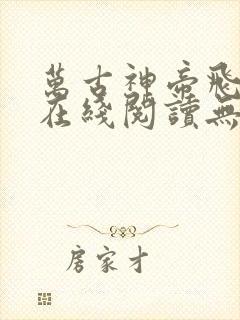 萬古神帝飛
在綫閱讀無
房家才